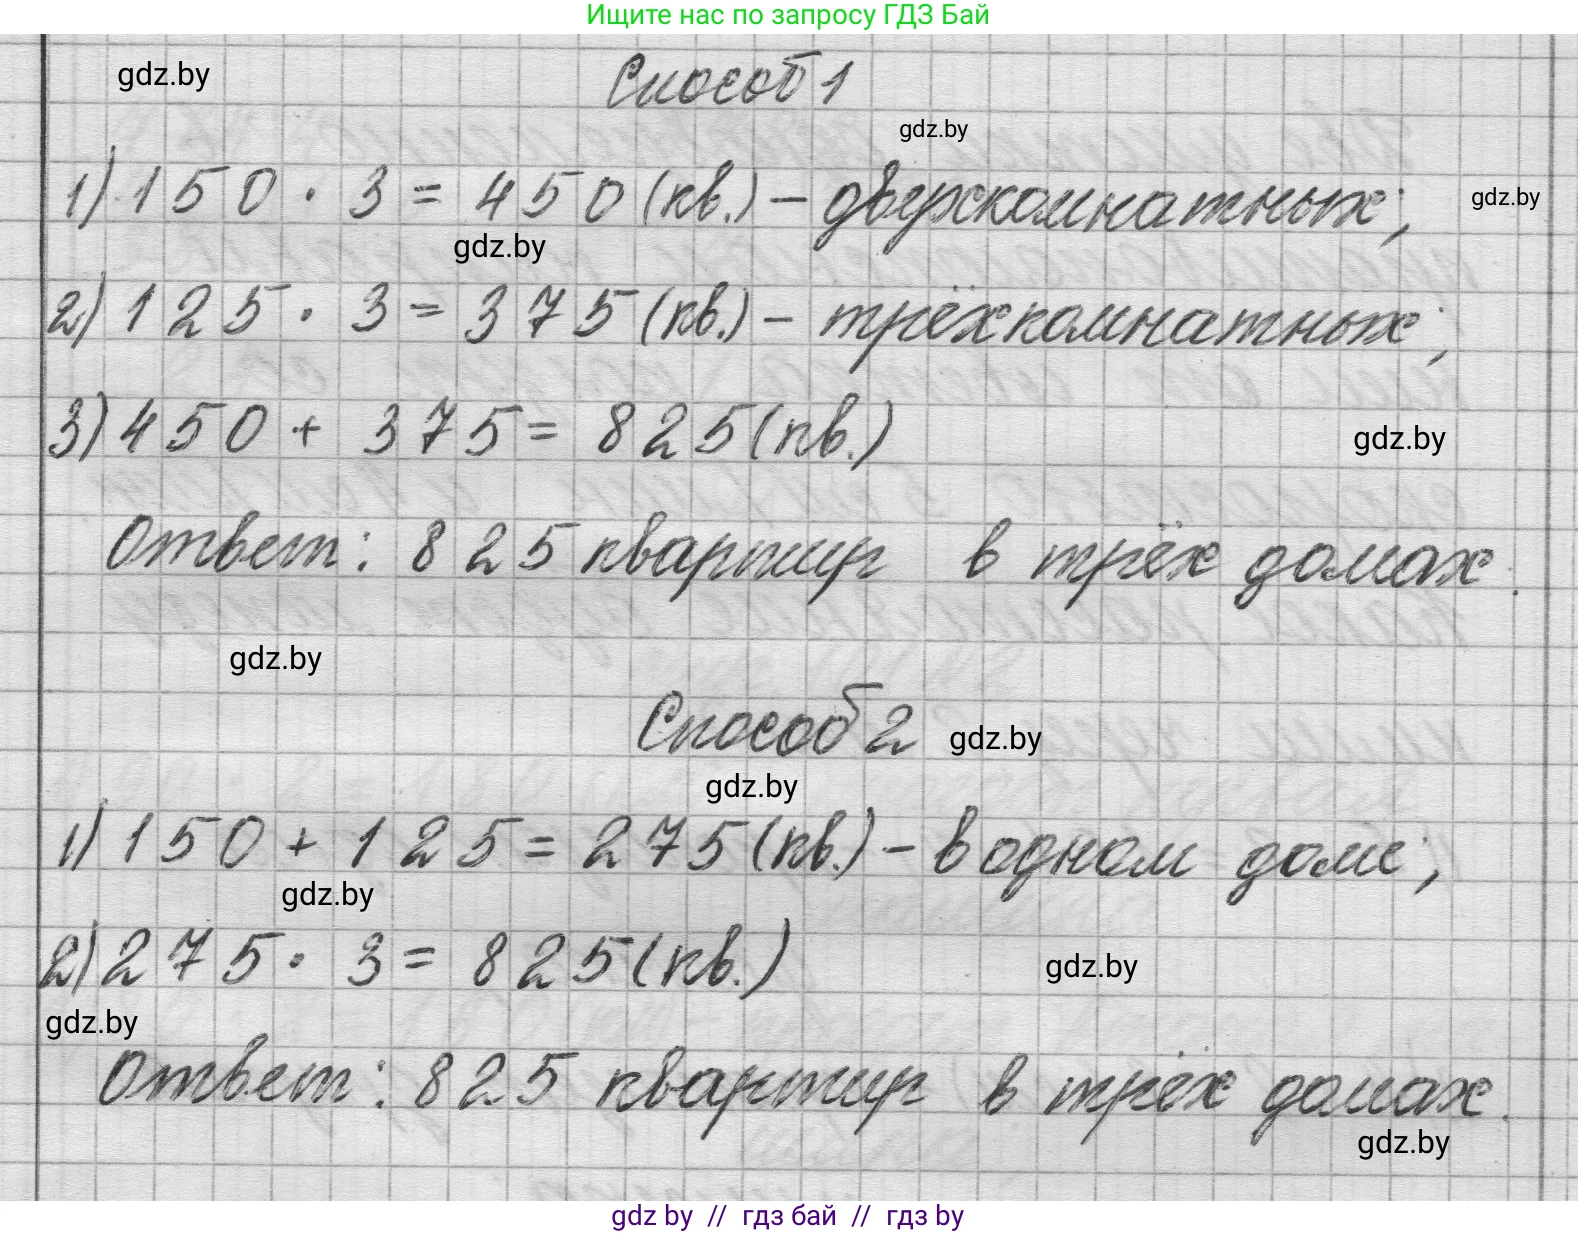 Ищите нас по запросу ГДЗ Бай
Способ 1
gdz.by
gdz.by
1) 150 · 3 = 450 (кв.) – двухкомнатных;
gdz.by
gdz.by
2) 125 · 3 = 375 (кв.) – трёхкомнатных;
3) 450 + 375 = 825 (кв.)
gdz.by
Ответ: 825 квартир в трёх домах.
gdz.by
Способ 2
gdz.by
gdz.by
1) 150 + 125 = 275 (кв.) – в одном доме;
gdz.by
2) 275 · 3 = 825 (кв.)
gdz.by
gdz.by
Ответ: 825 квартир в трёх домах.
gdz.by
gdz by // гдз бай // гдз by